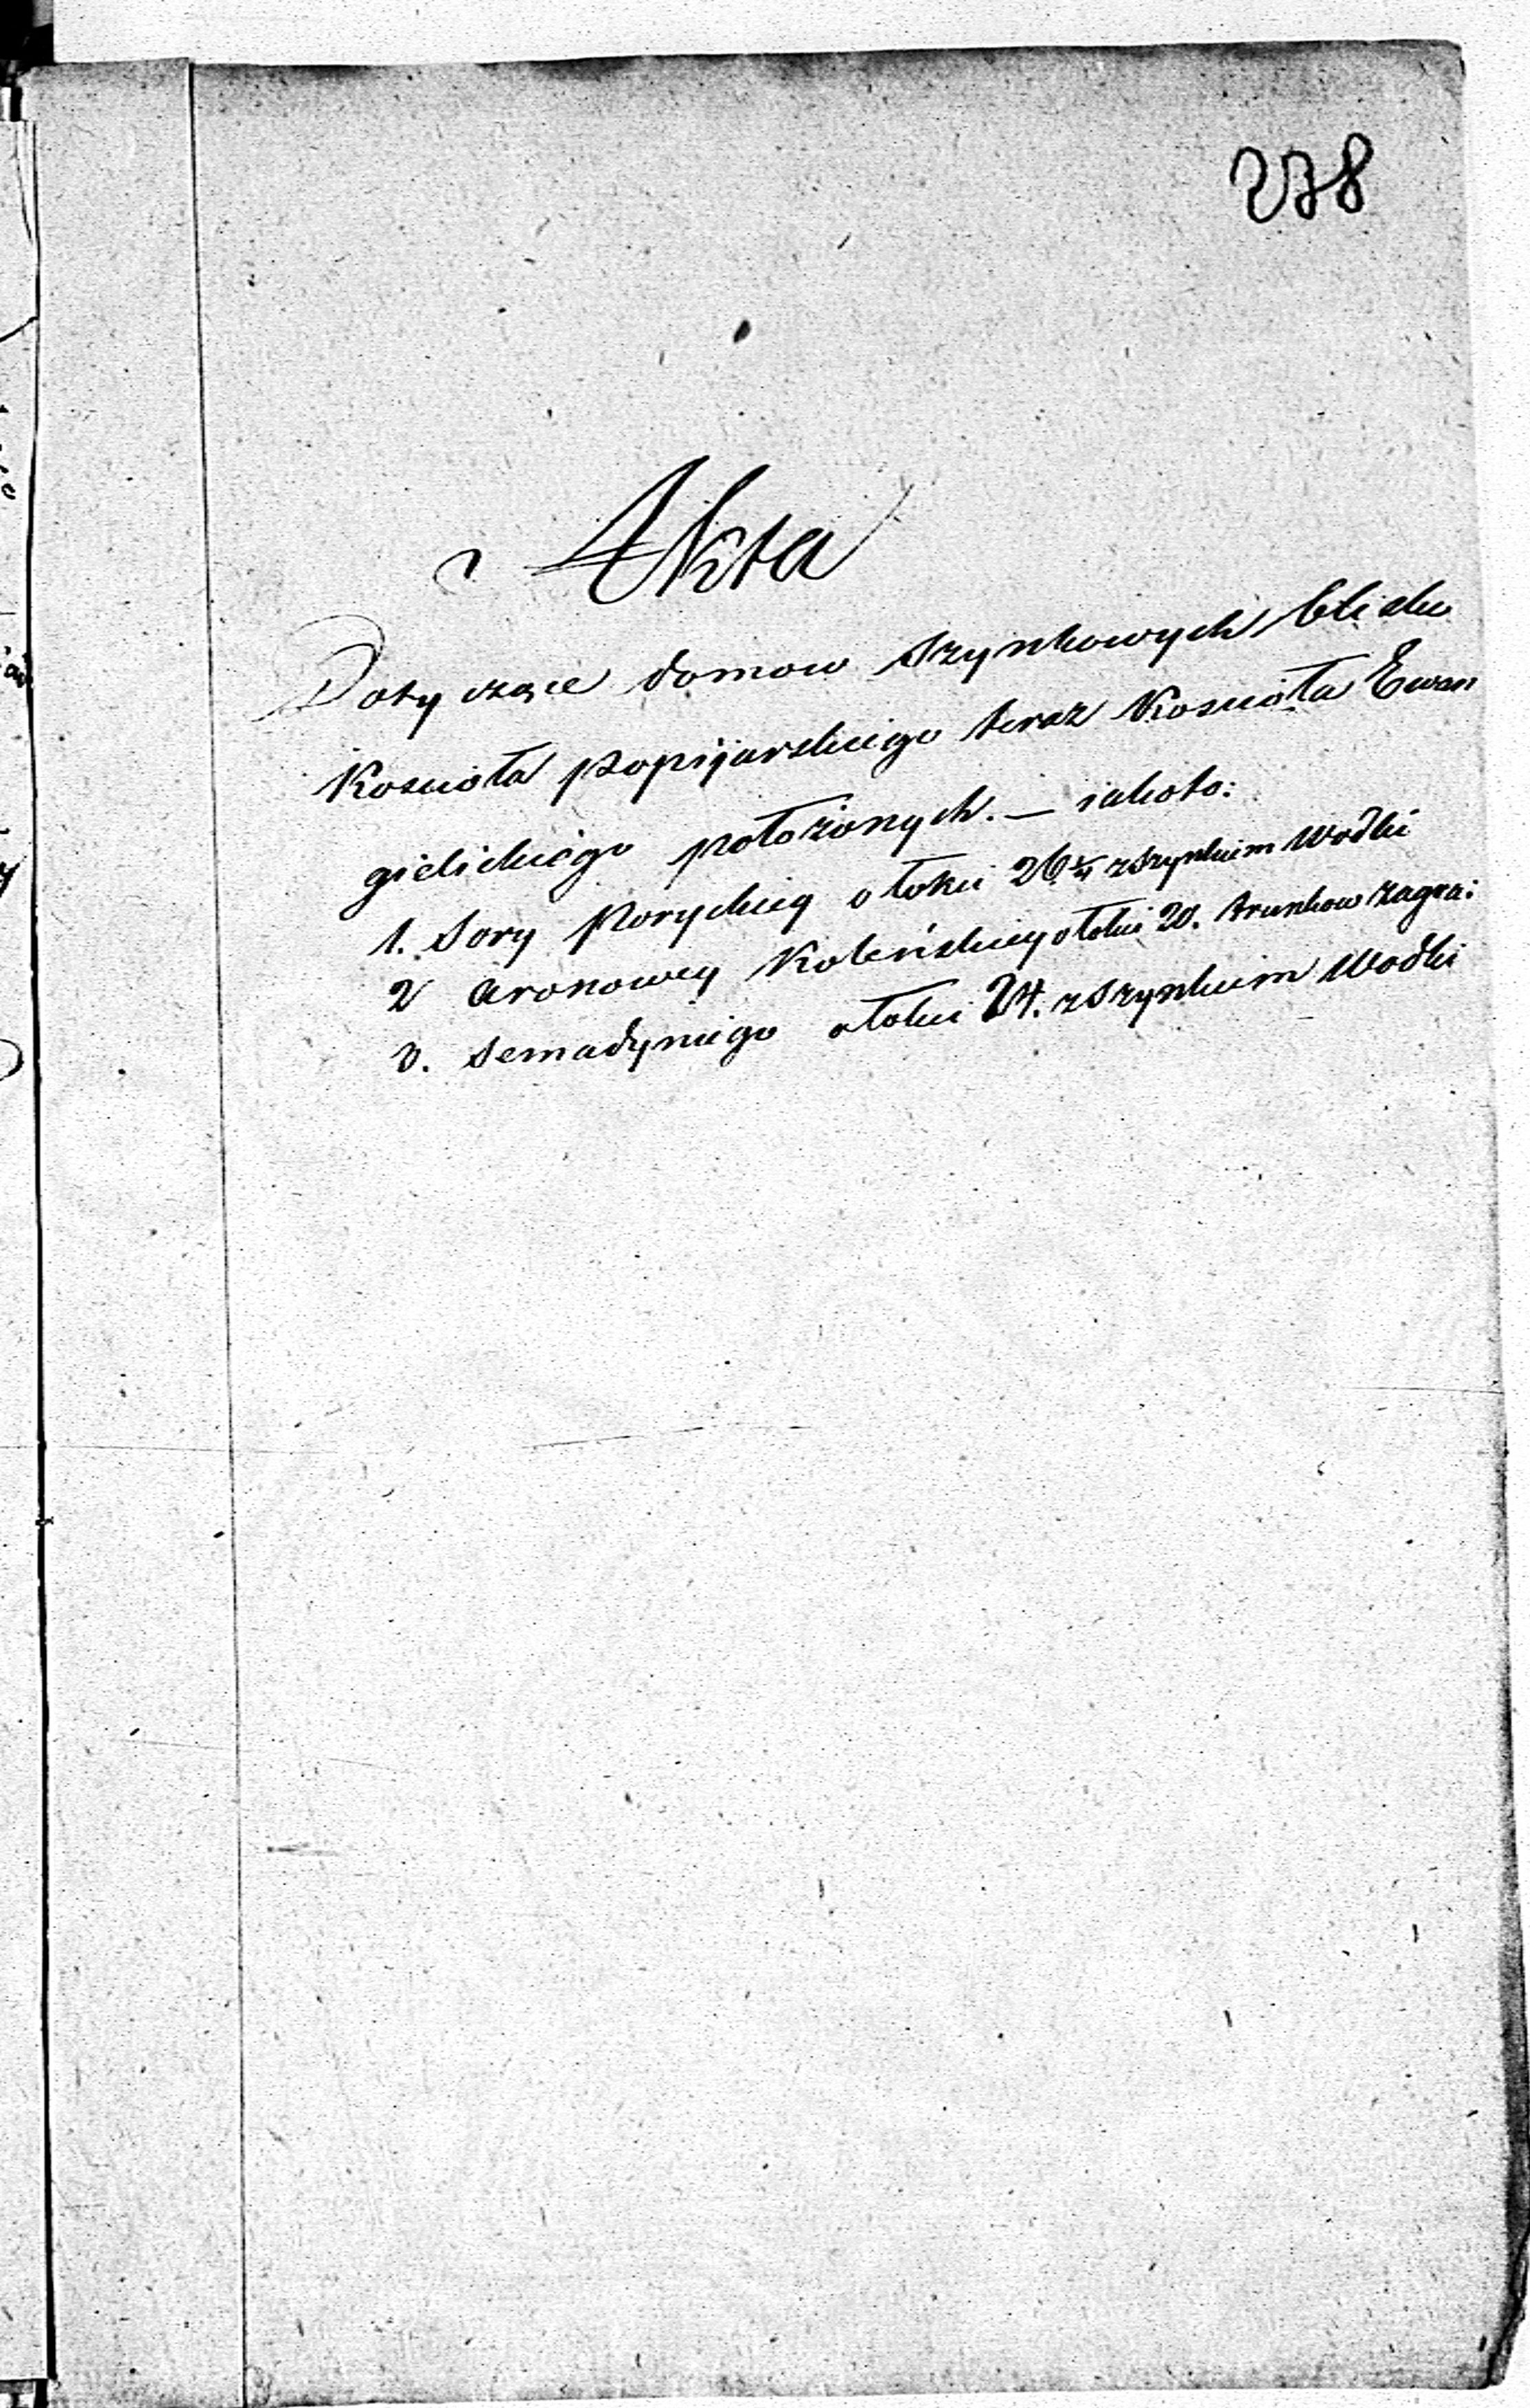 278
Akta
Dotyczące domow szynkowych blisko
Kościoła popijarskiego teraz Kościoła Ewan
gielickiego położonych. — iakoto:
1. Sory Poryckiey o łokci 26¾ z szynkiem Wodki
2 Aronowey Koleńskiey o łokci 20. trunkow zagra:
3. Semadyniego o łokci 24. z szynkiem Wodki